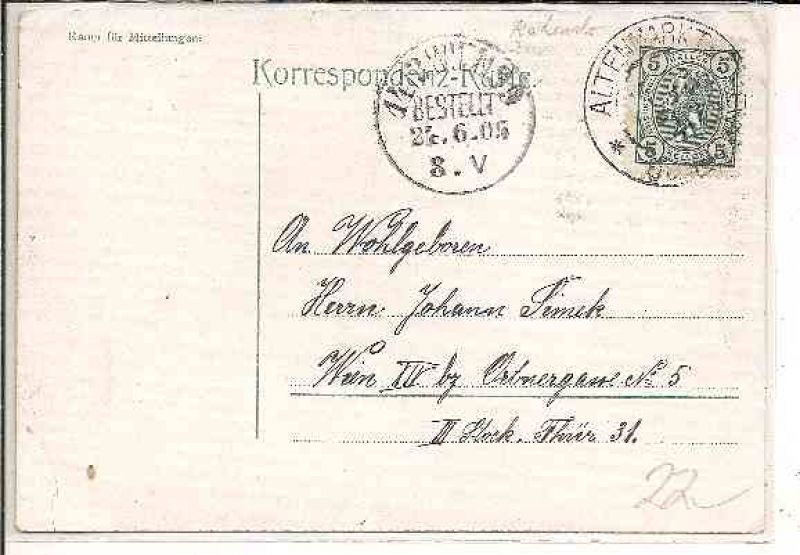 Raum für Mitteilungen:
Korrespondenz-Karte.
BESTELLT
24.6.05
8.V
ALTENMARKT
5 5
5 5
An Wohlgeboren
Herrn Johann Simek
Wien XIV bz Ortnergasse № 5
III Stock. Thür 31.
22